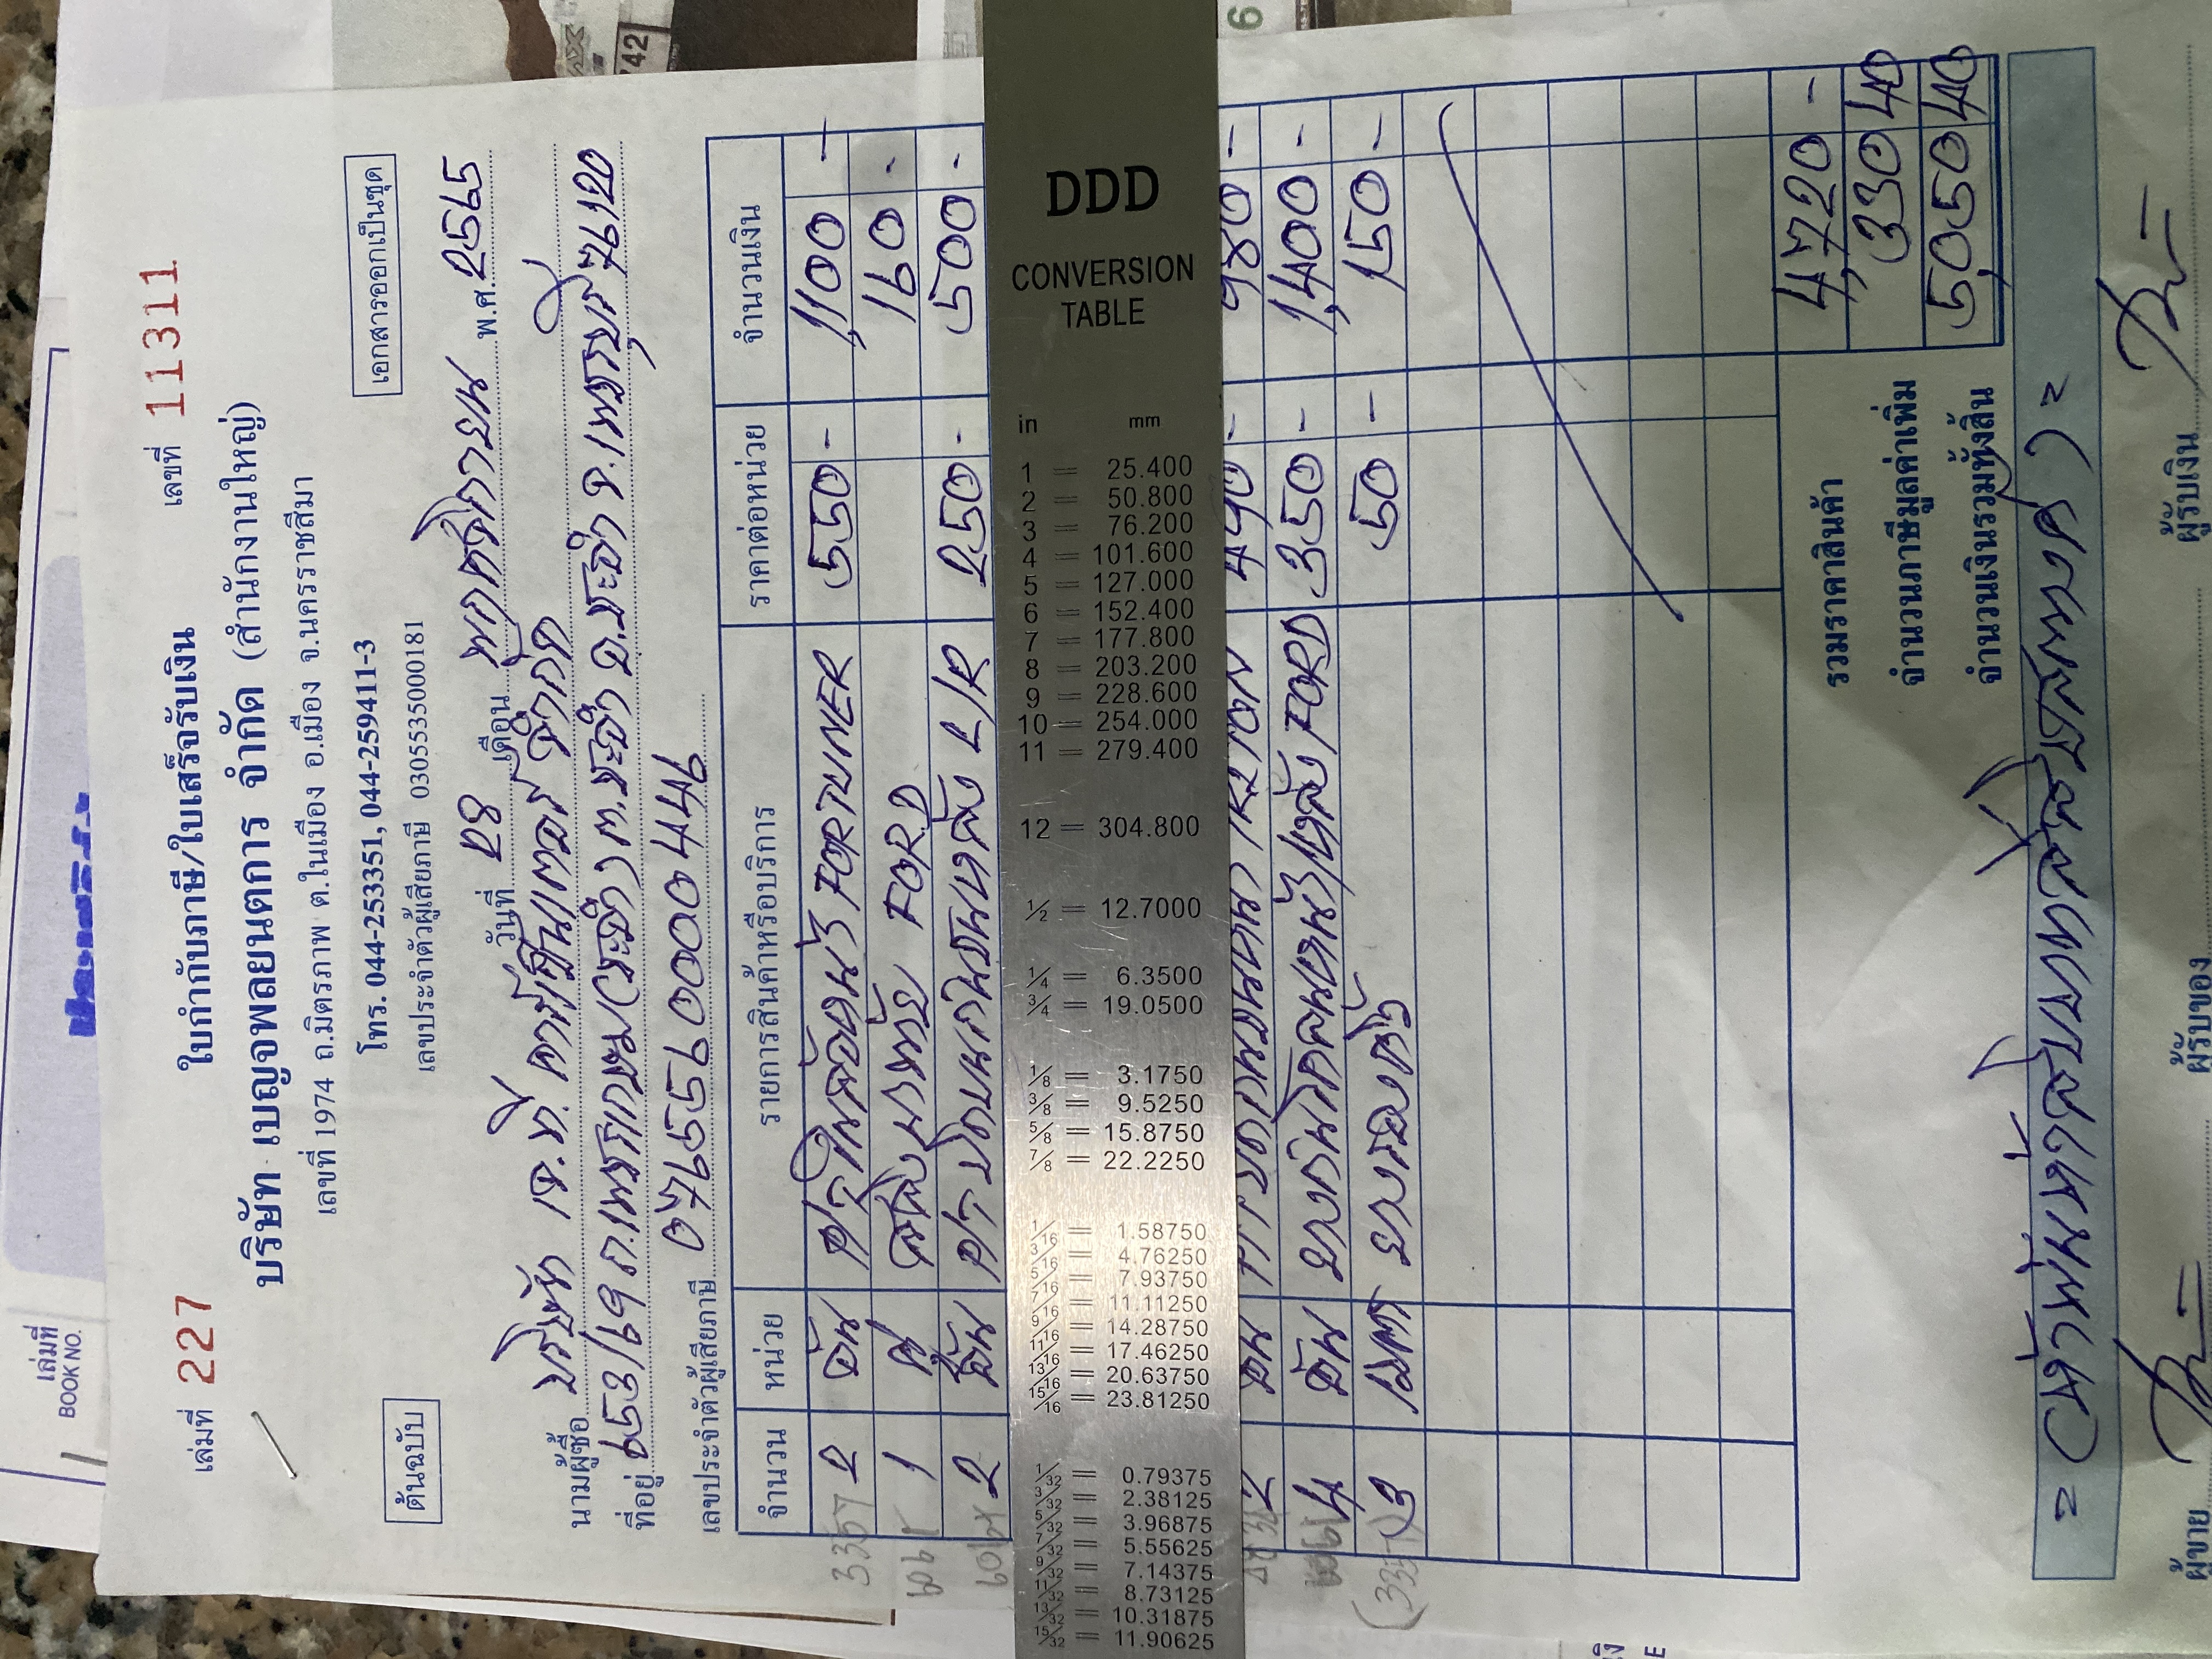 เล่มที่
BOOK NO.
742
เล่มที่ 227
ใบกำกับภาษี/ใบเสร็จรับเงิน
เลขที่ 11311
บริษัท เบญจพลยนตการ จำกัด (สำนักงานใหญ่)
เลขที่ 1974 ถ.มิตรภาพ ต.ในเมือง อ.เมือง จ.นครราชสีมา
โทร. 044-253351, 044-259411-3
เลขประจำตัวผู้เสียภาษี 0305535000181
ต้นฉบับ
เอกสารออกเป็นชุด
วันที่ 28 เดือน พฤศจิกายน พ.ศ. 2565
นามผู้ซื้อ บริษัท เจ.ที. คาร์เซ็นเตอร์ จำกัด
ที่อยู่ 653/69 ถ.เพชรเกษม (ชะอำ) ต.ชะอำ อ.ชะอำ จ.เพชรบุรี 76120
เลขประจำตัวผู้เสียภาษี 0765590000446
จำนวน หน่วย รายการสินค้าหรือบริการ ราคาต่อหน่วย จำนวนเงิน
2 อัน FORTUNER 550 - 1,100 -
1 FORD 160 -
2 อัน L/R 250 - 500 -
2 อัน TRITON 490 - 980 -
4 อัน FORD 350 - 1,400 -
3 เมตร ยางรองแคร้ง 50 - 150 -
รวมราคาสินค้า 4,720 -
จำนวนภาษีมูลค่าเพิ่ม 330 40
จำนวนเงินรวมทั้งสิ้น 5,050 40
= (ห้าพันห้าสิบบาทสี่สิบสตางค์) =
ผู้ขาย
ผู้รับของ
ผู้รับเงิน
DDD
CONVERSION
TABLE
in mm
1 = 25.400
2 = 50.800
3 = 76.200
4 = 101.600
5 = 127.000
6 = 152.400
7 = 177.800
8 = 203.200
9 = 228.600
10 = 254.000
11 = 279.400
12 = 304.800
1/2 = 12.7000
1/4 = 6.3500
3/4 = 19.0500
1/8 = 3.1750
3/8 = 9.5250
5/8 = 15.8750
7/8 = 22.2250
1/16 = 1.58750
3/16 = 4.76250
5/16 = 7.93750
7/16 = 11.11250
9/16 = 14.28750
11/16 = 17.46250
13/16 = 20.63750
15/16 = 23.81250
1/32 = 0.79375
3/32 = 2.38125
5/32 = 3.96875
7/32 = 5.55625
9/32 = 7.14375
11/32 = 8.73125
13/32 = 10.31875
15/32 = 11.90625